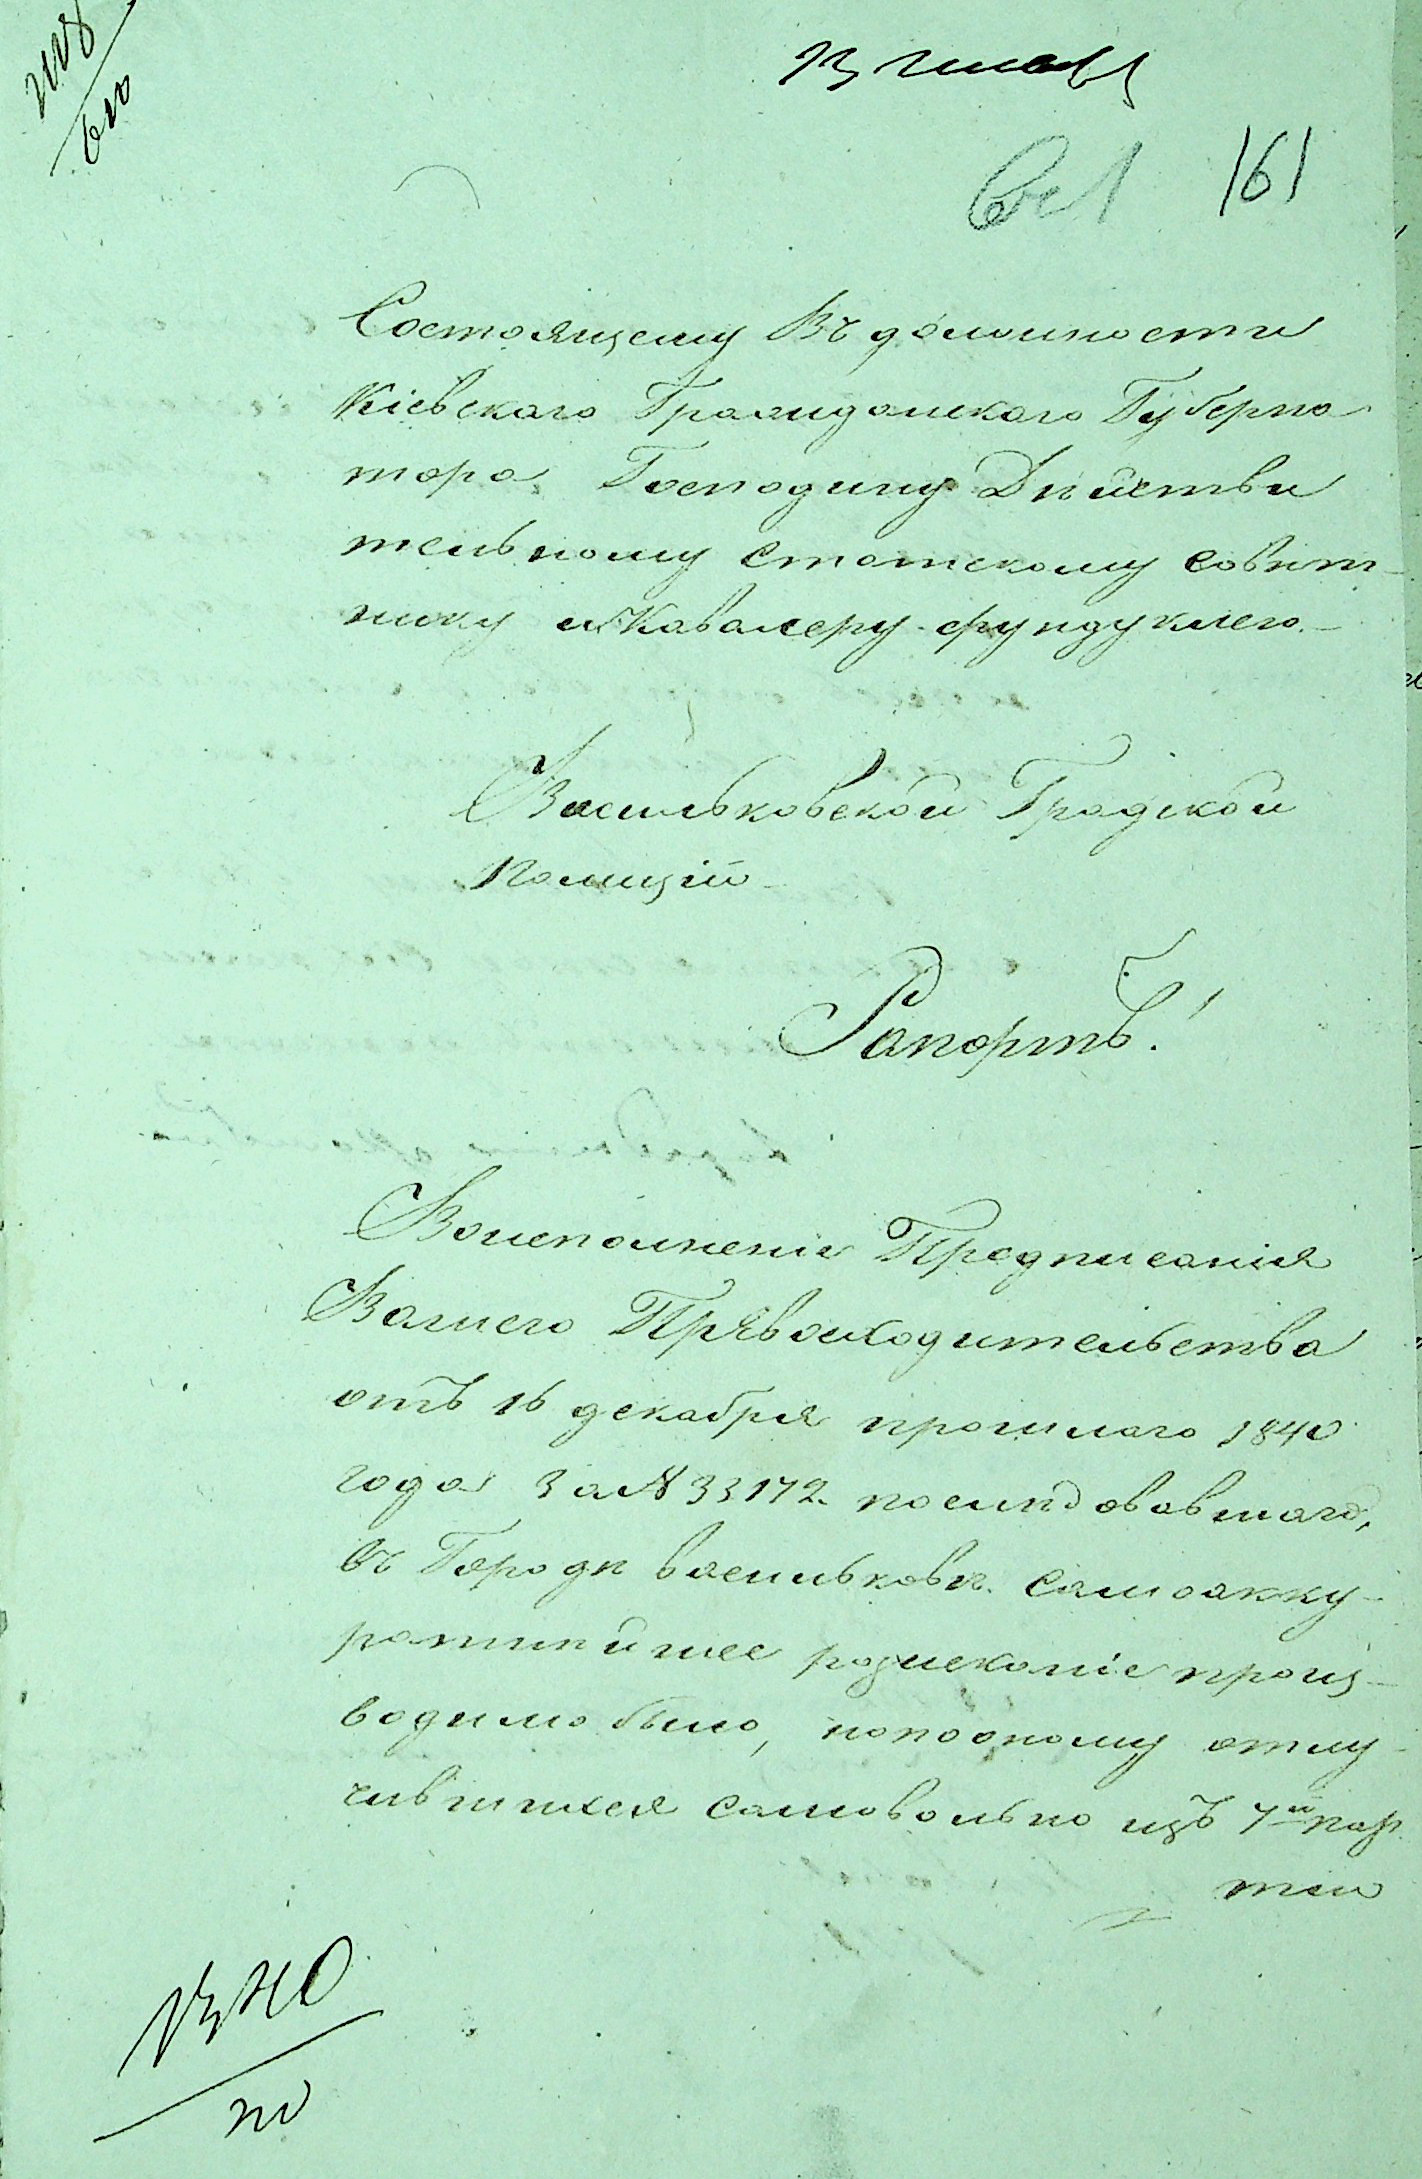 161
Состоящему въ должности
Кіевскаго Гражданскаго Губерна
тора, Господину Дѣйстви
тельному статскому совѣт-
нику и Кавалеру фундуклею.-
Васильковской Градской
Полиціи
Рапортъ!
Воисполненіе Предписанія
Вашего Превосходительства
отъ 16 декабря прошлаго 1840
года за № 33172. послѣдовавшаго,
въ Городѣ Васильковѣ. самоакку-
ратнѣйшее розысканіе произ-
водимо было, но пооному отлу-
чившихся самовольно изъ 7й пар
тіи